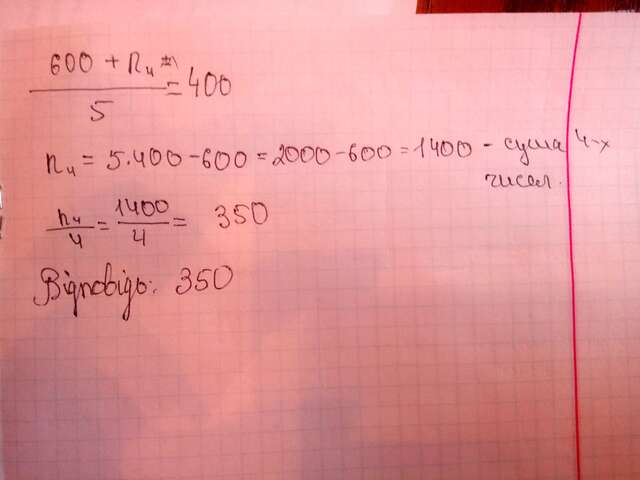 600 + n₄
/ 5 = 400
n₄ = 5·400 - 600 = 2000 - 600 = 1400 - сума 4-х
чисел.
n₄/4 = 1400/4 = 350
Відповідь: 350